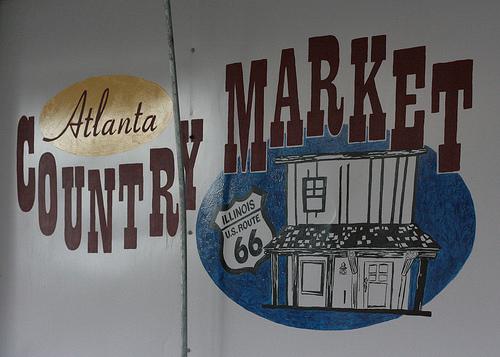 Atlanta
COUNTRY
MARKET
ILLINOIS
U.S. ROUTE
66